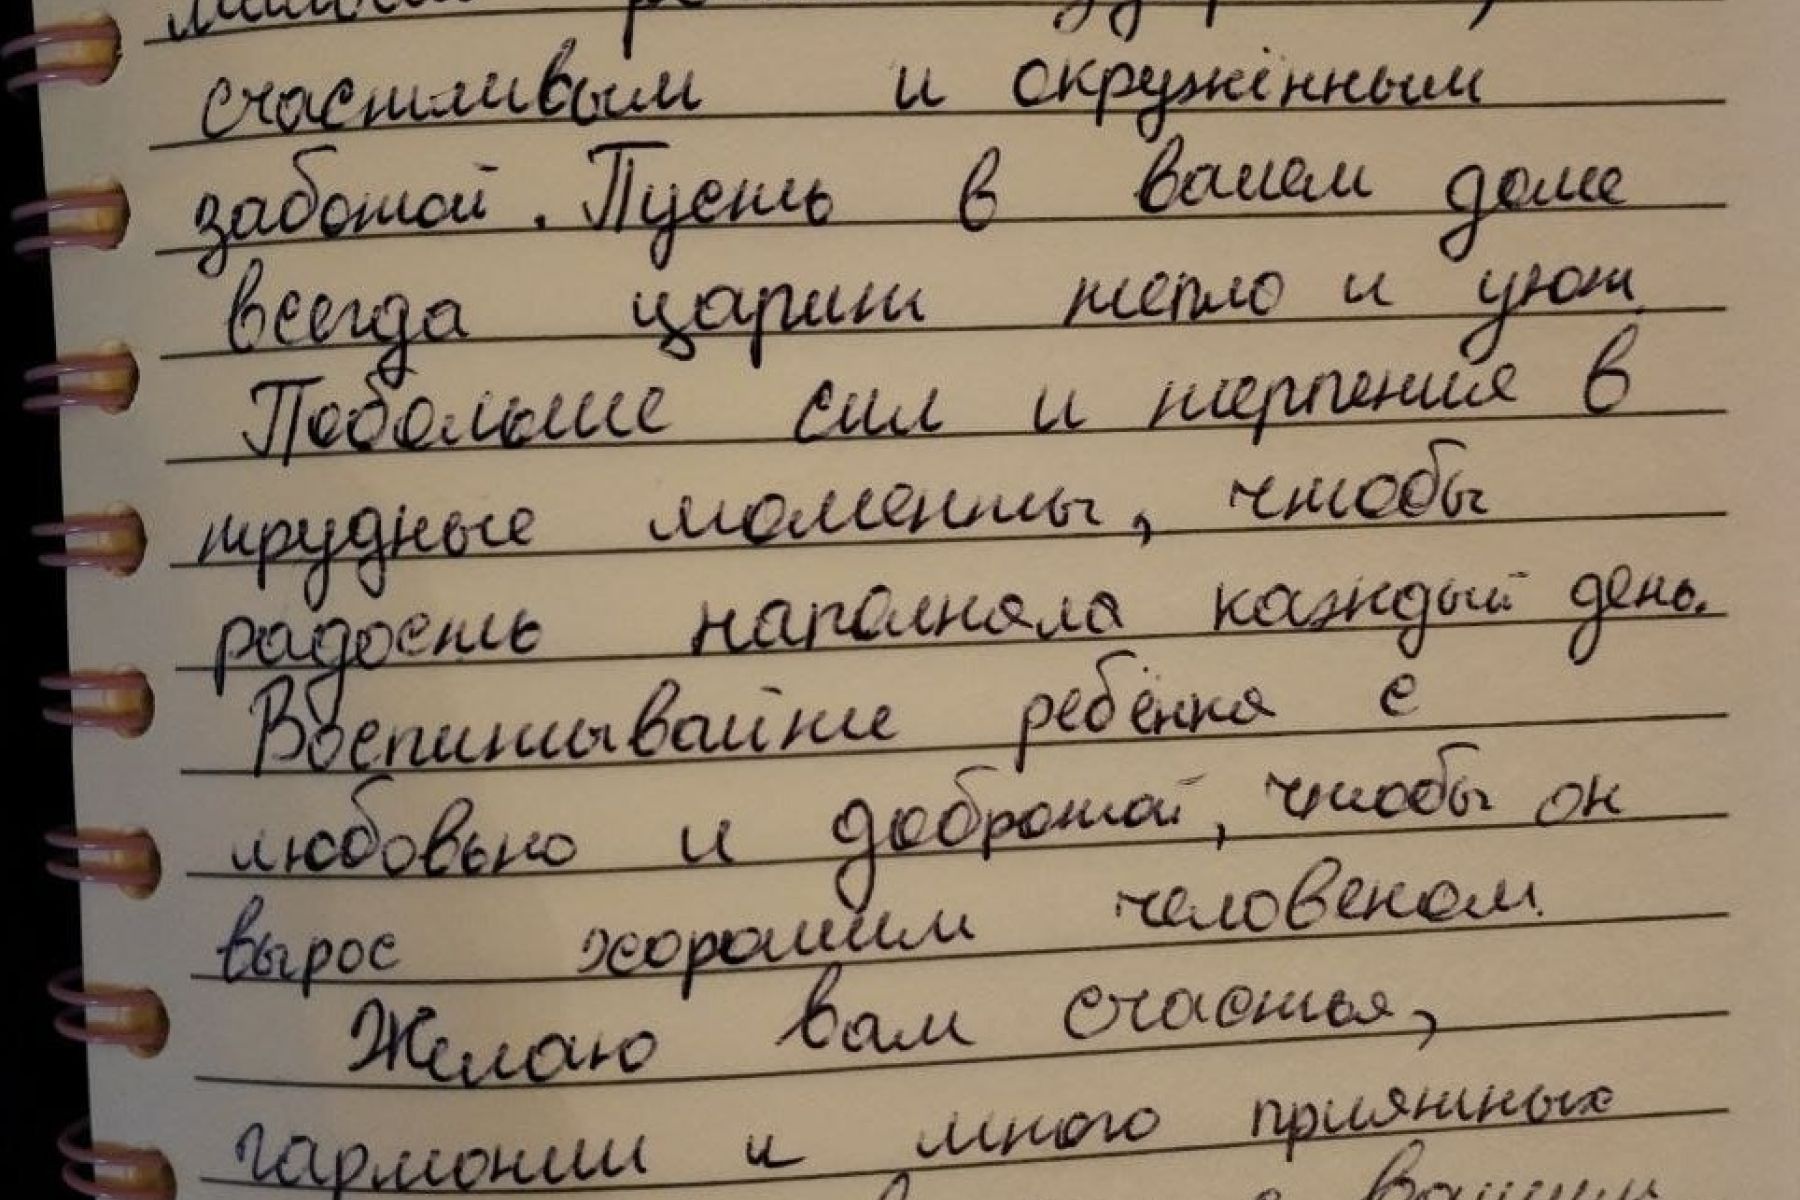 счастливым и окружённым
заботой. Пусть в вашем доме
всегда царит тепло и уют.
Побольше сил и терпения в
трудные моменты, чтобы
радость наполняла каждый день.
Воспитывайте ребёнка с
любовью и добротой, чтобы он
вырос хорошим человеком.
Желаю вам счастья,
гармонии и много приятных